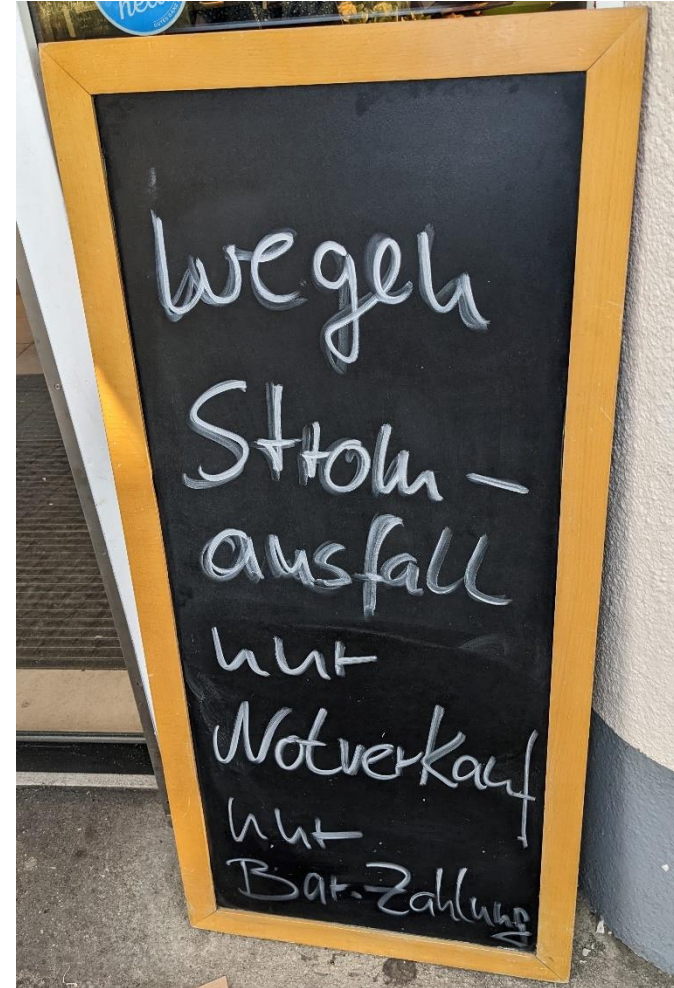 wegen
Strom-
ausfall
nur
Notverkauf
nur
Bar-Zahlung